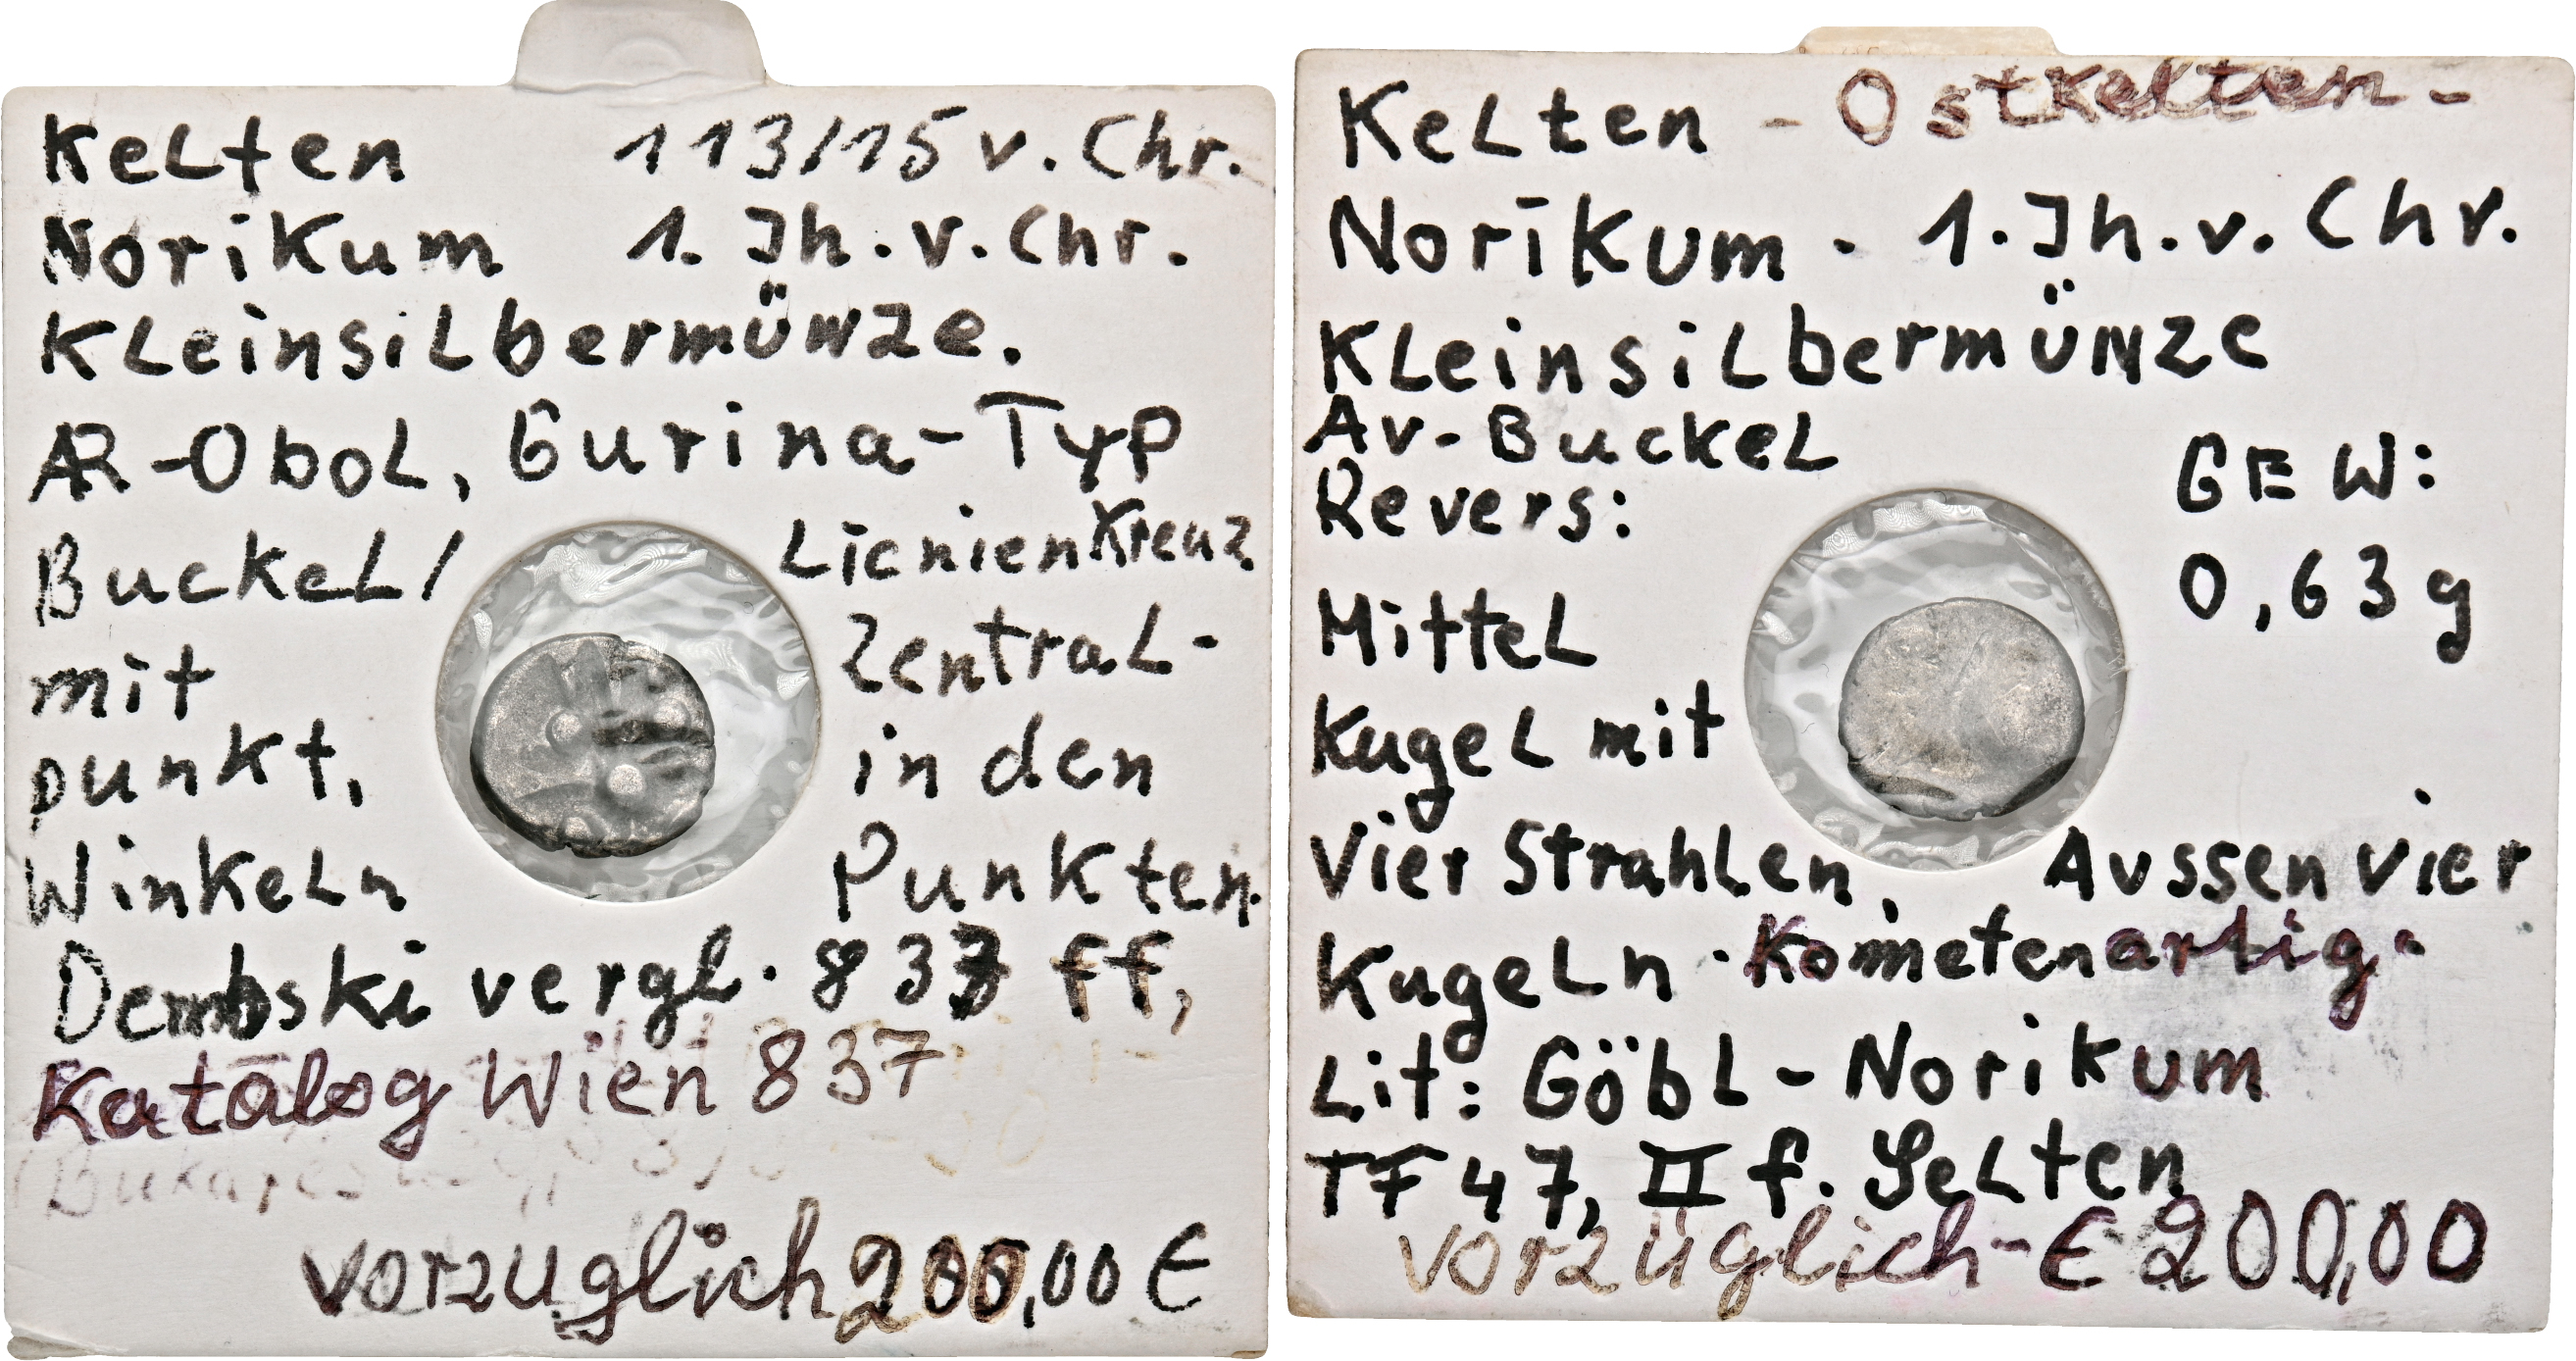 Kelten 113/15 v. Chr.
Norikum 1. Jh. v. Chr.
Kleinsilbermünze.
AR-Obol, Gurina-Typ
Buckel/ LicnienKreuz
mit Zentral-
punkt, in den
Winkeln Punkten.
Dembski vergl. 837 ff,
Katalog Wien 837
vorzuglich 200,00 €
Kelten - Ostkelten-
Norikum. 1. Jh. v. Chr.
Kleinsilbermünze
Av-Buckel GEW:
Revers: 0,63g
Mittel
Kugel mit
Vier Strahlen, Aussen vier
Kugeln. Kometenartig.
Lit: Göbl-Norikum
TF 47, II f. Selten
vorzüglich-€ 200,00